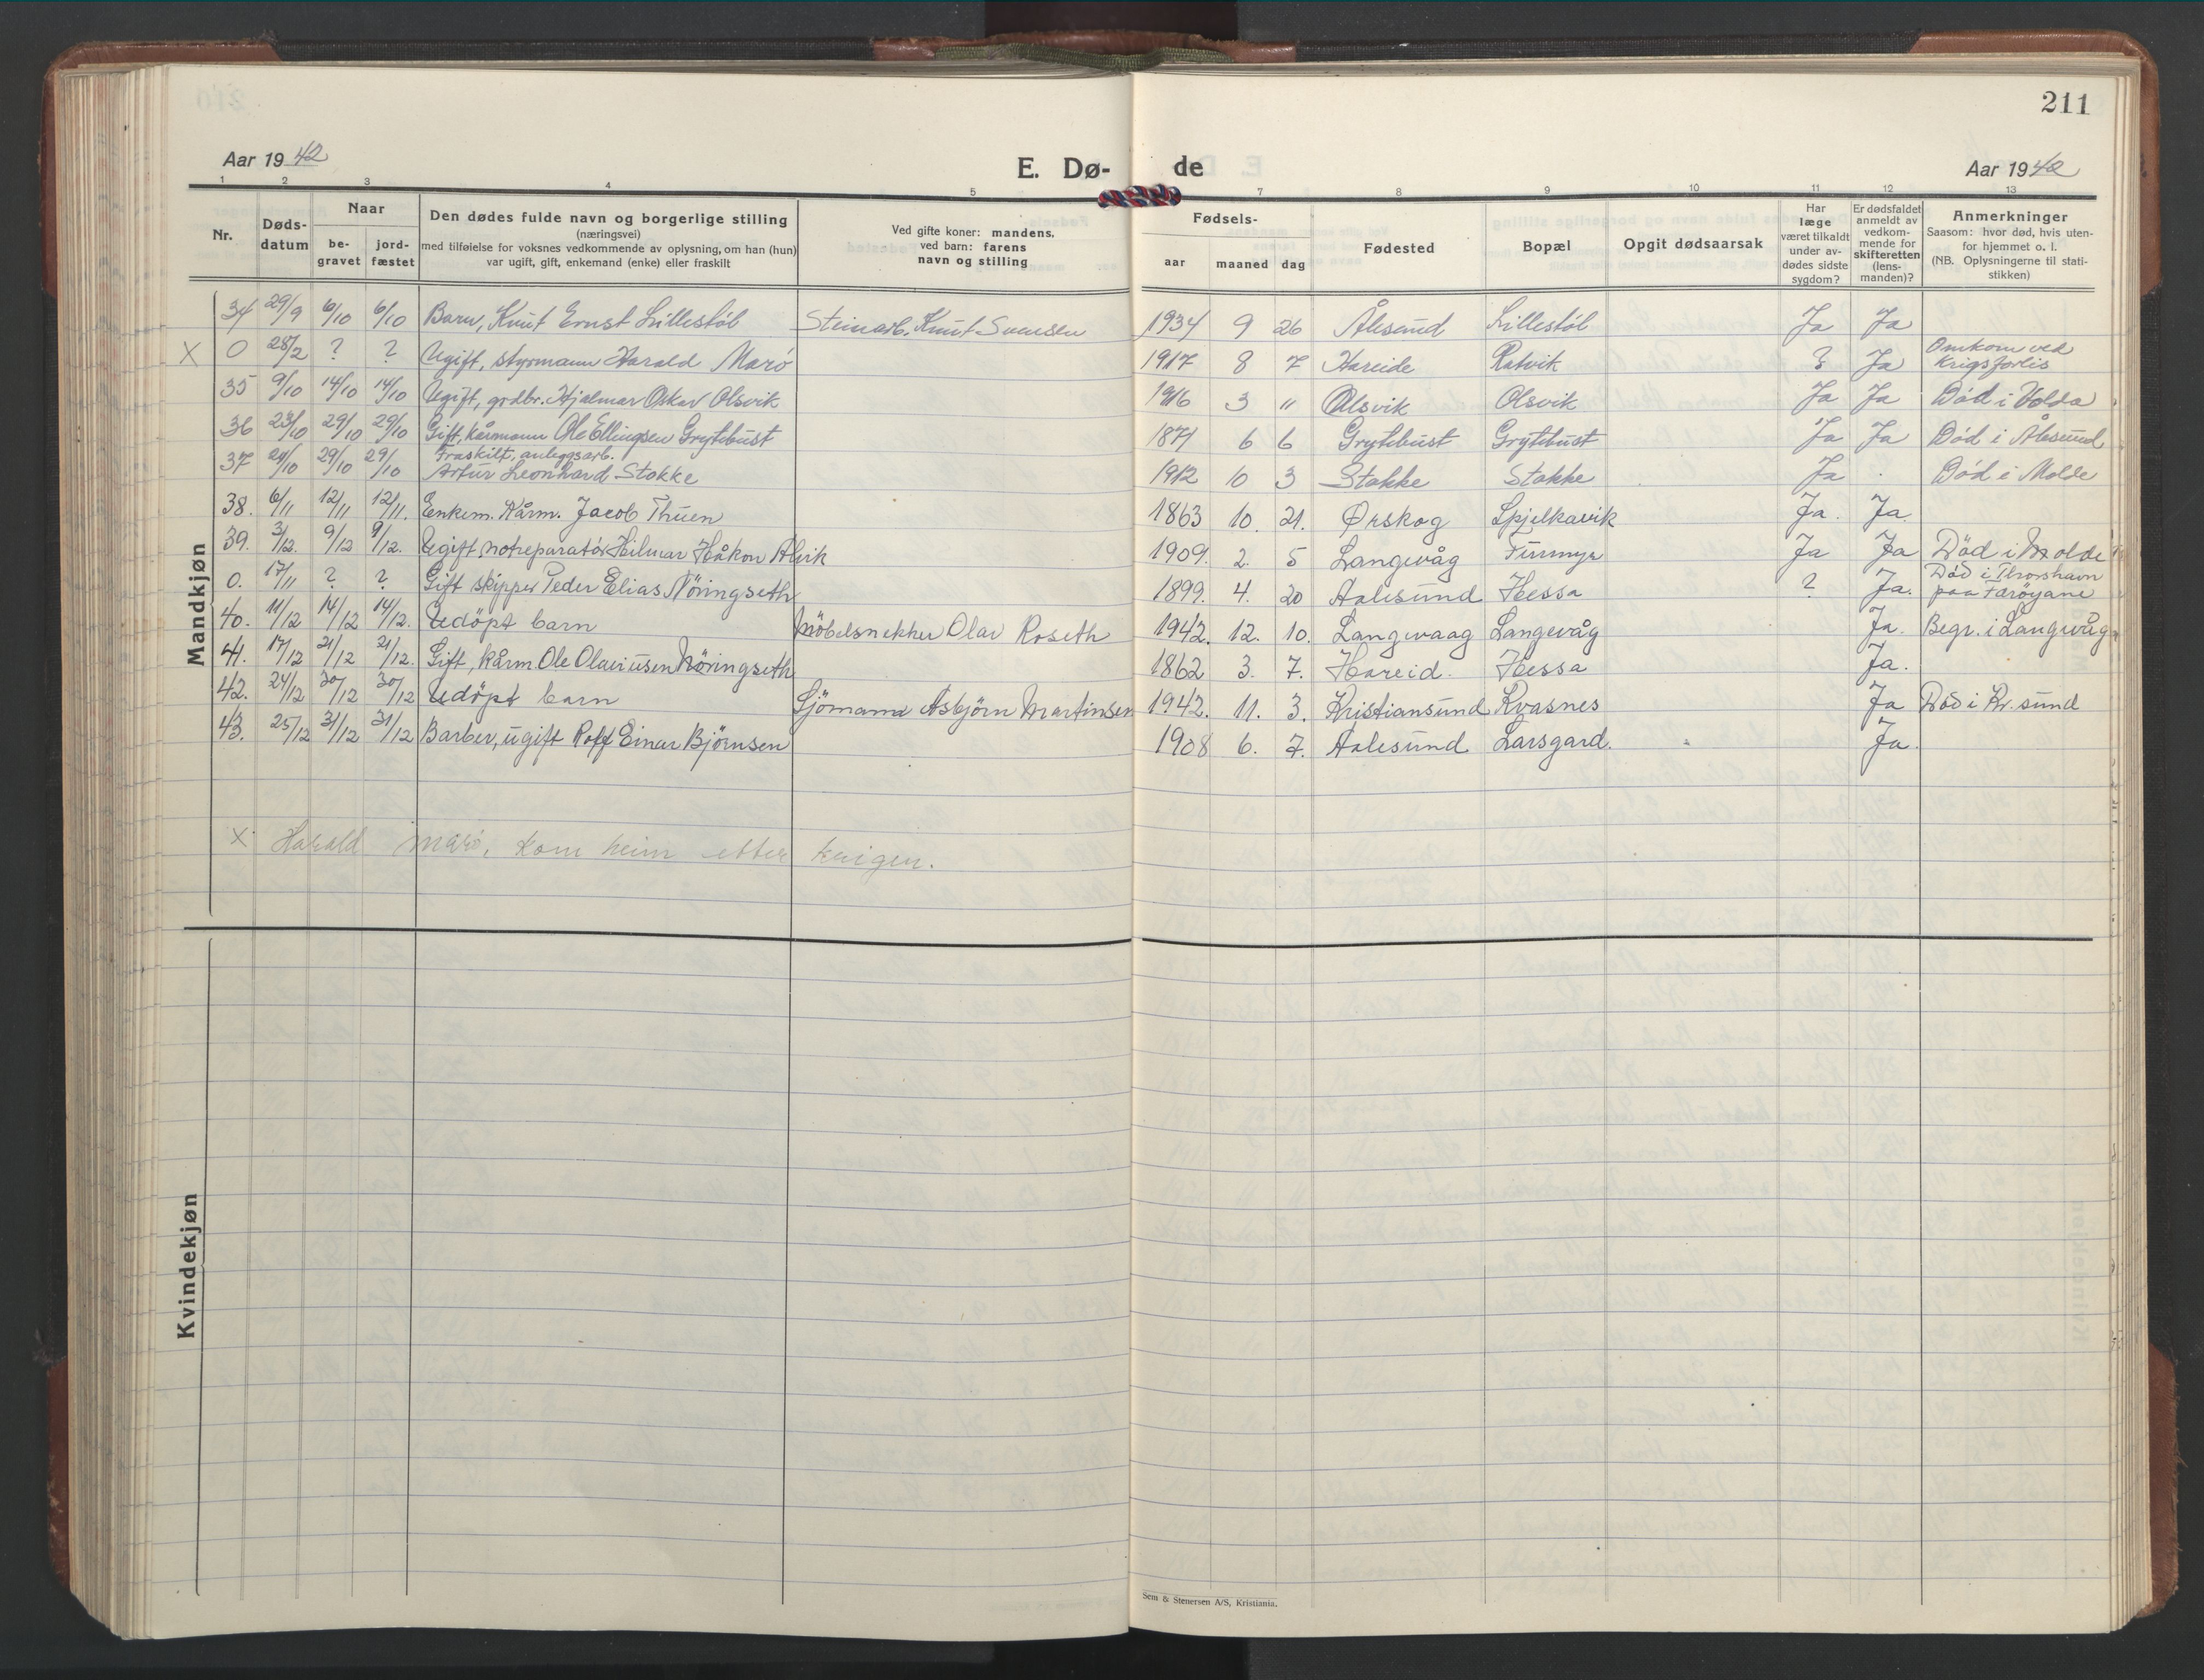 211
Aar 1942
E. Dø-
de
Aar 1942
1 2 3 4 5 7 8 9 10 11 12 13
Nr.
Døds-
datum
Naar
be-
gravet
jord-
fæstet
Den dødes fulde navn og borgerlige stilling
(næringsvei)
med tilføielse for voksnes vedkommende av oplysning, om han (hun)
var ugift, gift, enkemand (enke) eller fraskilt
Ved gifte koner: mandens,
ved barn: farens
navn og stilling
Fødsels-
aar maaned dag
Fødested
Bopæl
Opgit dødsaarsak
Har
læge
været tilkaldt
under av-
dødes sidste
sygdom?
Er dødsfaldet
anmeldt av
vedkom-
mende for
skifteretten
(lens-
manden)?
Anmerkninger
Saasom: hvor død, hvis uten-
for hjemmet o. l.
(NB. Oplysningerne til stati-
stikken)
Mandkjøn
34 29/9 6/10 6/10 Barn, Knut Ernst Lillestöl Steinarb. Knut Svensen 1934 9 26 Ålesund Lillestöl Ja Ja
X 0 28/2 ? ? Ugift, styrmann Harald Marö 1917 8 7 Hareide Ratvik ? Ja Omkom ved
krigsforlis
35 9/10 14/10 14/10 Ugift, grdbr. Hjalmar Oskar Olsvik 1916 3 " Olsvik Olsvik Ja Ja Död i Volda
36 23/10 29/10 29/10 Gift, kårmann Ole Ellingsen Grytebust 1871 6 6 Grytebust Grytebust Ja Ja Död i Ålesund
Fraskilt, anleggsarb.
37 29/10 29/10 Artur Leonhard Stokke 1912 10 3 Stokke Stokke Ja Död i Molde
38. 6/11 12/11 12/11. Enkem. Kårm. Jacob Thuen 1863 10. 21. Ørskog Spjelkavik Ja. Ja.
39. 3/12. 9/12 9/12. Ugift notreparatör Hilmar Håkon Alvik 1909. 2. 5 Langevåg Ja Ja Död i Molde
0. 17/11 ? ? Gift skipper Peder Elias Nöringseth 1899. 4. 20 Aalesund Hessa ? Ja. Död i Thorshavn
paa Færöyane
40. 11/12 14/12 14/12. Udöpt barn Möbelsnekker Olav Roseth 1942. 12. 10. Langevaag Langevåg Ja. Begr. i Langevåg
41. 17/12 21/12 21/12. Gift, kårm. Ole Olaviusen Nöringseth 1862 3. 7. Hareid. Hessa Ja.
42. 24/12 30/12 30/12 Udöpt barn Sjömann Asbjörn Martinsen 1942. 11. 3. Kristiansund Kvasnes Ja Död i Kr. sund
43. 25/12 31/12 31/12 Barber, ugift Rolf Einar Björnsen 1908 6. 7. Aalesund Larsgard. Ja.
X Harald Marö, kom heim etter krigen.
Kvindekjøn
Sem & Stenersen A/S, Kristiania.